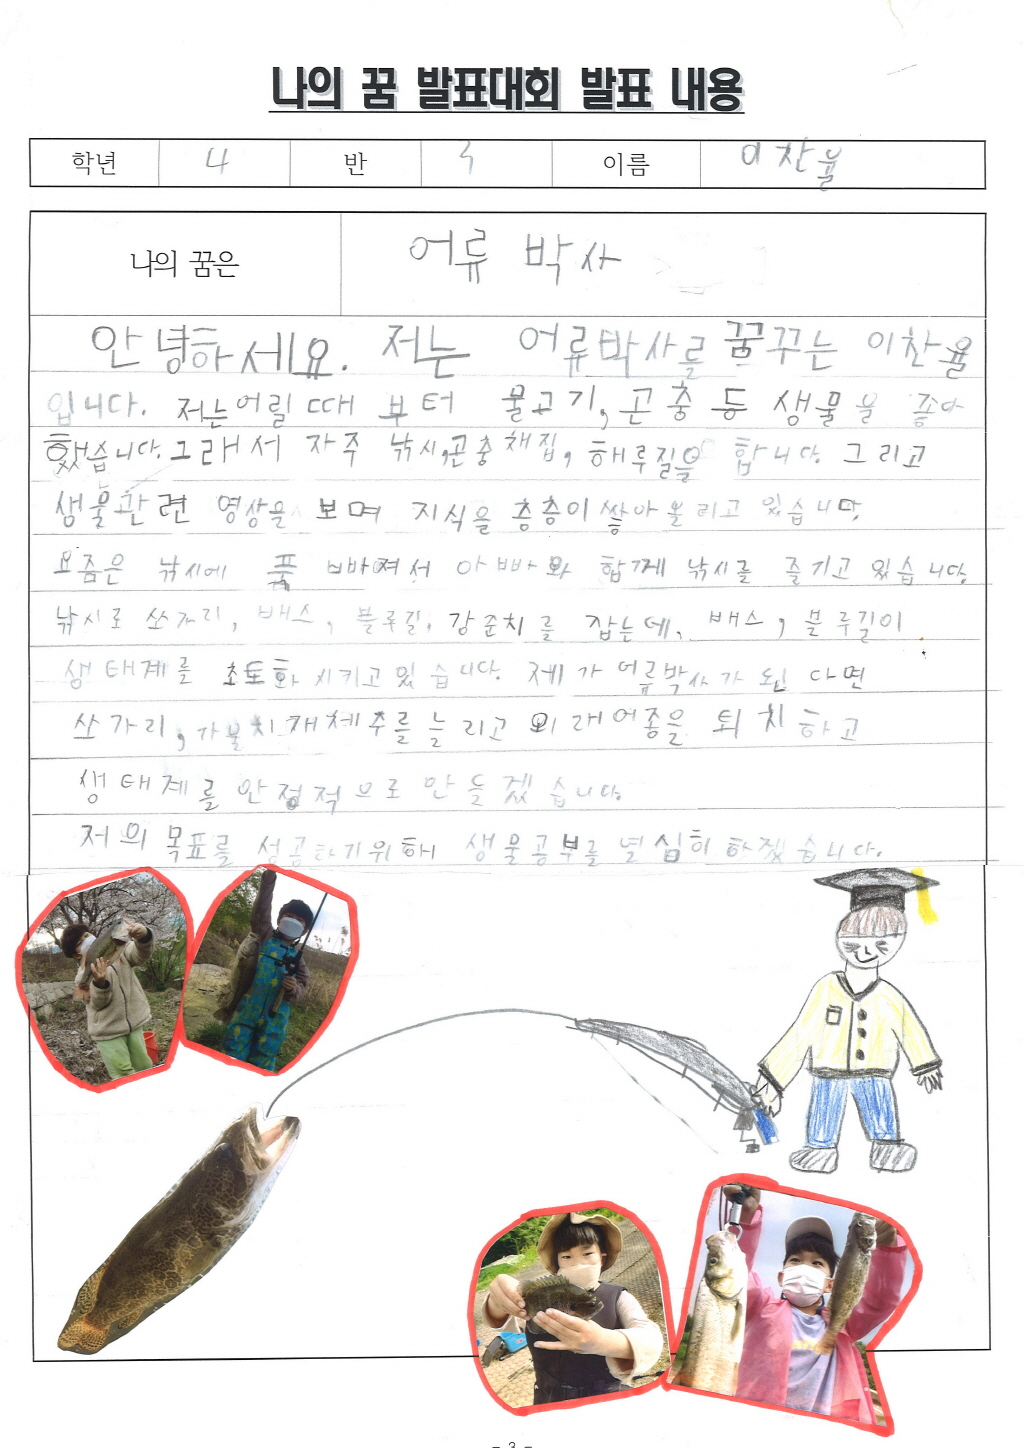 나의 꿈 발표대회 발표 내용
학년 4 반 3 이름 이찬율
나의 꿈은 어류 박사
안녕하세요. 저는 어류박사를 꿈꾸는 이찬율
입니다. 저는어릴 때 부터 물고기, 곤충 등 생물을 좋아
했습니다.그래서 자주 낚시,곤충채집, 해루질을 합니다. 그리고
생물관련 영상을 보며 지식을 층층이 쌓아 올리고 있습니다.
요즘은 낚시에 푹 빠져서 아빠와 함께 낚시를 즐기고 있습니다.
낚시로 쏘가리, 배스, 블루길, 강준치를 잡는데, 배스, 블루길이
생태계를 초토화 시키고 있습니다. 제가 어류박사가 된다면
쏘가리, 가물치 개체수를 늘리고 외래어종을 퇴치하고
생태계를 안정적으로 만들겠습니다.
저의 목표를 성공하기위해 생물공부를 열심히 하겠습니다.
- 3 -